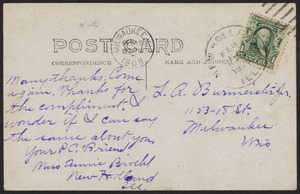 POSTCARD
CORRESPONDENCE
MILWAUKEE
1908
NEW HOLLAND
ILL.
Many thanks. Come
again. Thanks for
the compliment. I
wonder if I can say
the same about you.
Your P.C. Friend
Miss Annie
New Holland
Ill.
L. A. Burmeister Jr.
1153-18 St.
Milwaukee
Wis